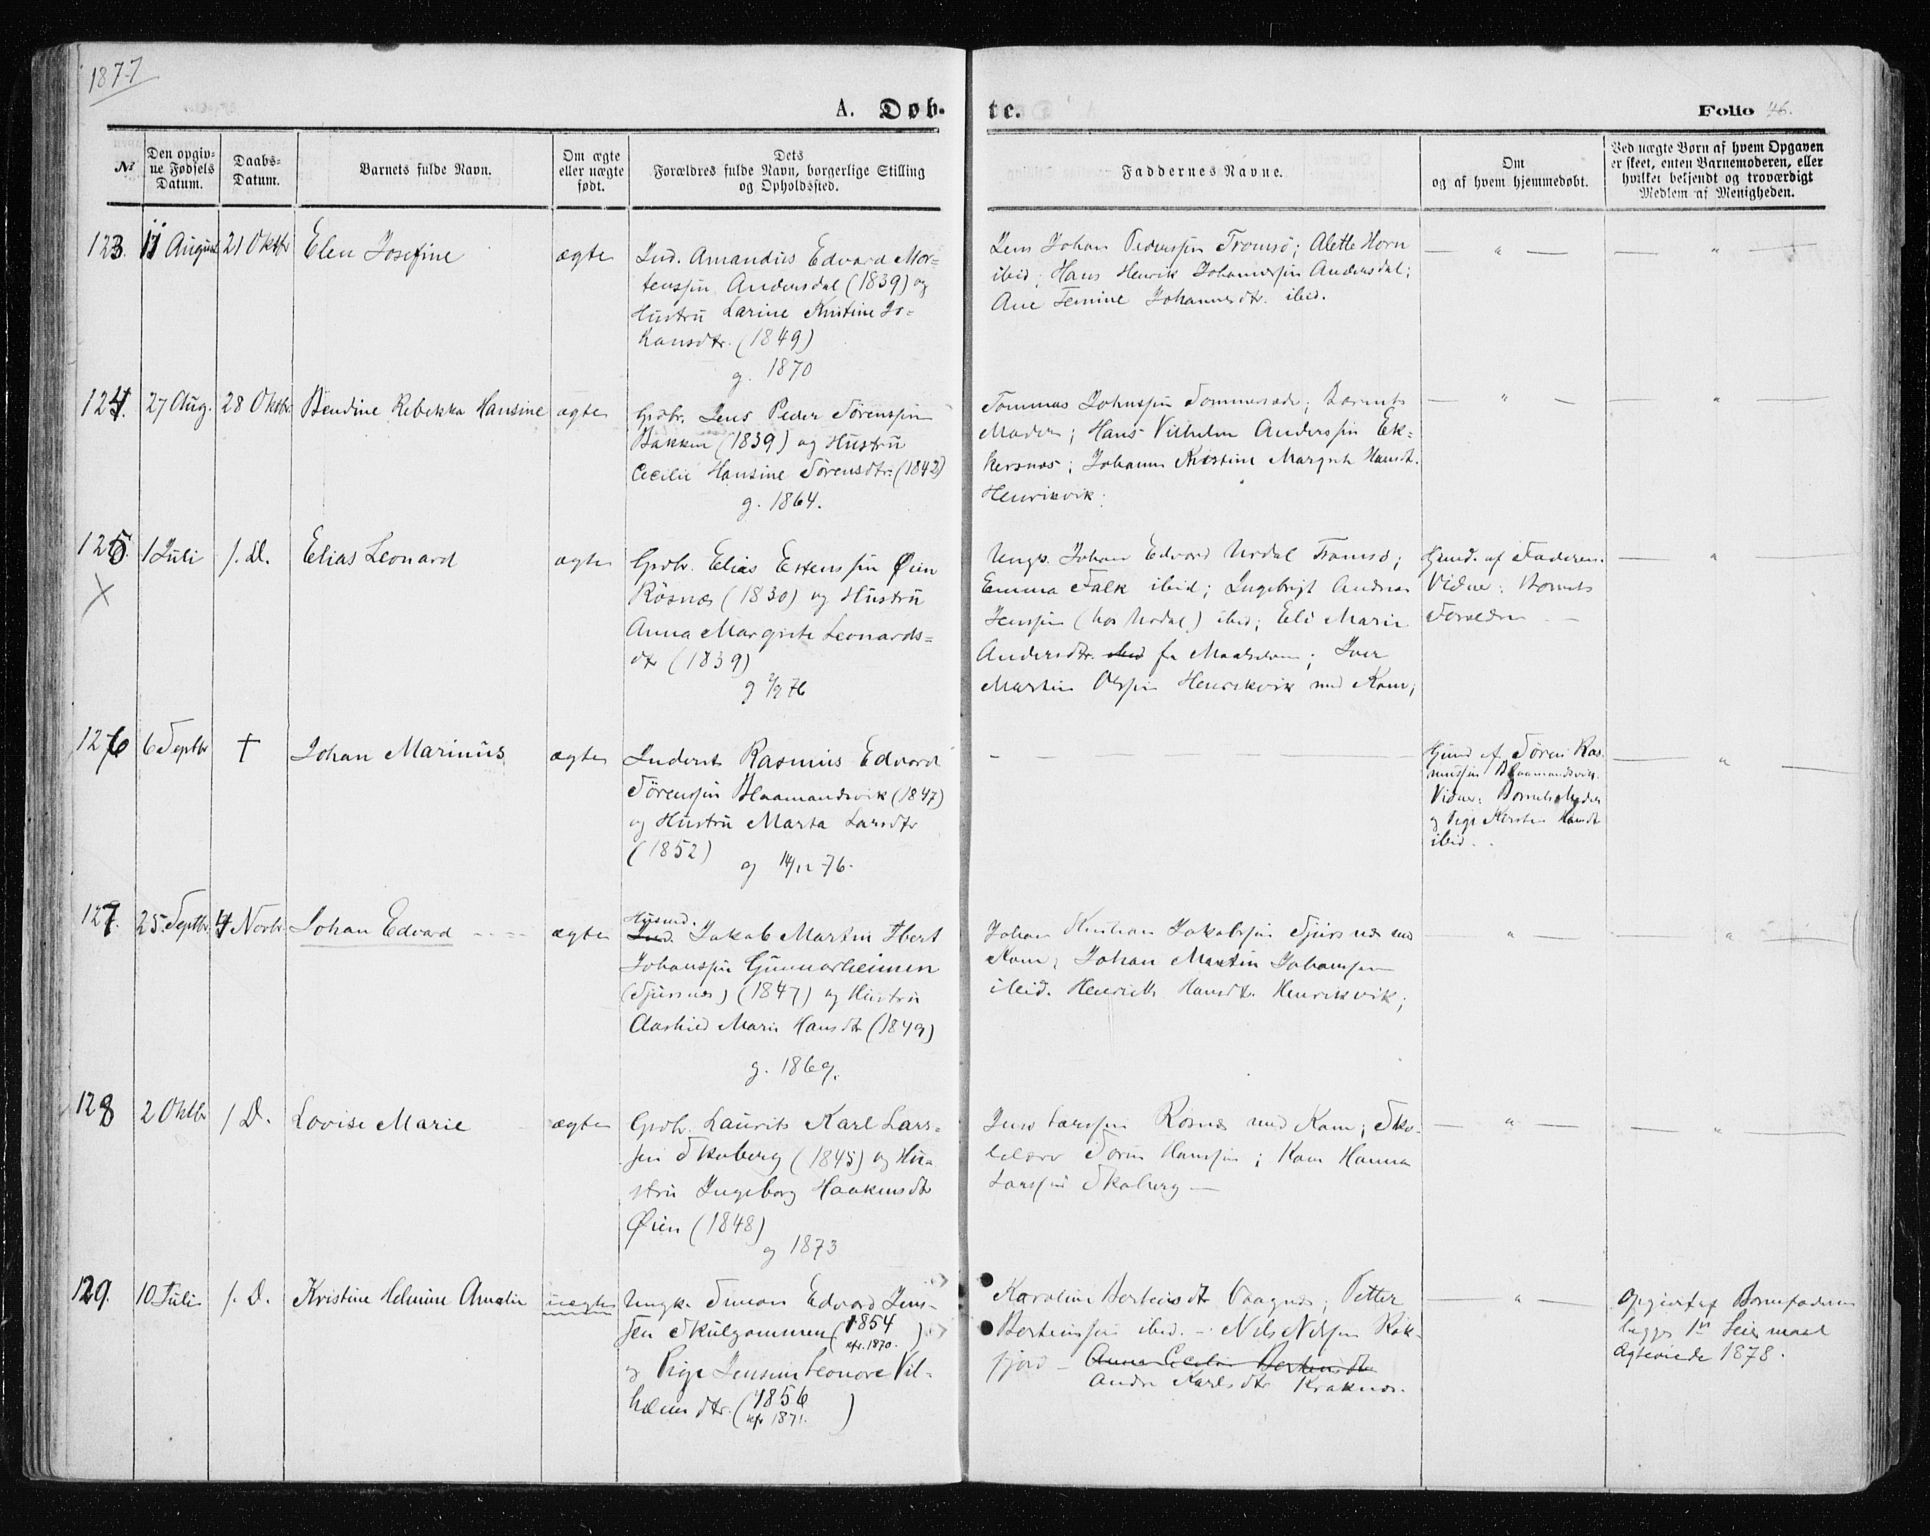 1877
A. Døb-
te.
Folio 46.
№
Den opgiv-
ne Fødsels
Datum.
Daabs-
Datum.
Barnets fulde Navn.
Om ægte
eller uægte
født.
Dets
Forældres fulde Navn, borgerlige Stilling
og Opholdssted.
Faddernes Navne.
Om
og af hvem hjemmedøbt.
Ved uægte Børn af hvem Opgaven
er skeet, enten Barnemoderen, eller
hvilket bekjendt og troværdigt
Medlem af Menigheden.
123 11 August 21 Oktbr Elen Josefine ægte
Ind. Amandus Edvard Mor-
tenssøn Andersdal (1839) og
Hustru Larine Kristine Jo-
hansdtr. (1849)
g. 1870
Jens Johan Pederssøn Tromsø; Alette Horn
ibid; Hans Henrik Johannessøn Andersdal;
Ane Johannesdtr. ibid.
— " — — " —
124. 27 Aug. 28 Oktbr Bendine Rebekka Hansine ægte
Grdbr. Jens Peder Sørenssøn
Bakken (1839) og Hustru
Cecilie Hansine Sørensdtr. (1842)
g. 1864.
Tommas Johnssøn Sommersæde; Barnets
Moder; Hans Vilhelm Anderssøn Ek-
kersnes; Johanna Kristine Margrete Hansdt.
Henrikvik.
— " — — " —
125 1 Juli 1. D. Elias Leonard ægte
X
Grdbr. Elias Estenssøn Øien
Rösnæs (1830) og Hustru
Anna Margrete Leonards-
dtr (1839)
g 76
Ungk. Johan Edvard Urdal Tromsø;
Emma Falk ibid; Ingebrigt Andreas
Jenssøn (hos Urdal) ibid; Eli Marie
Andersdtr. ibid fr Maalselven; Iver
Martin Olssøn Henrikvik med Kone;
Hjemd. af Faderen.
Vidner: Barnets
Forældre —
— " —
126 6 Septbr † Johan Marinus ægte
Inderst Rasmus Edvard
Sørenssøn Blaamandsvik (1847)
og Hustru Marta Larsdtr
(1852)
g 14/12 76.
— — — — —
Hjemd af Søren Ras
mussøn Blaamandsvik.
Vidner: Barnets Moder
og Pige Kirsten Hansdt
ibid.
— " —
127. 25. Septbr. 4 Novbr. Johan Edvard ægte
Husmd.
Ind. Jakob Martin Ibert
Johanssøn Gunnarheimen
(Sjursnes) (1847) og Hustru
Aashild Marie Hansdtr (1849)
g. 1869.
Johan Kristian Jakobssøn Sjursnes med
Kone; Johan Martin Johanssen
ibid. Henrikke Hansdt. Henrikvik;
— " — — " —
128 2 Oktbr 1 D. Lovise Marie ægte
Grdbr. Laurits Karl Lars-
sen Skoberg (1845) og Hu-
stru Ingeborg Haakensdtr
Øien (1848)
g 1873
Jens Larssøn Rosnæs med Kone; Sko-
lelærer Søren Hanssøn; Kone Hanna
Larssøn Skoberg —
— " — — " —
129. 10 Juli 1. D. Kristine Helmine Amalie uægte
Ungk. Simon Edvard Jens-
sen Skulgammen (1854
kfr. 1870. )
og Pige Jensine Leonore Vil-
helmsdtr. (1856
kfr 1871. )
Karoline Bertheusdtr Vaagnes; Petter
Bertheussøn ibid. — Nils Nilssøn Kat-
fjord — Anna Cecilie Bertheusdtr
Andre Karlsdtr Kraknes.
— " —
Opgivet af Barnefaderen
begges 1ste Leiermaal
Ægteviede 1878.